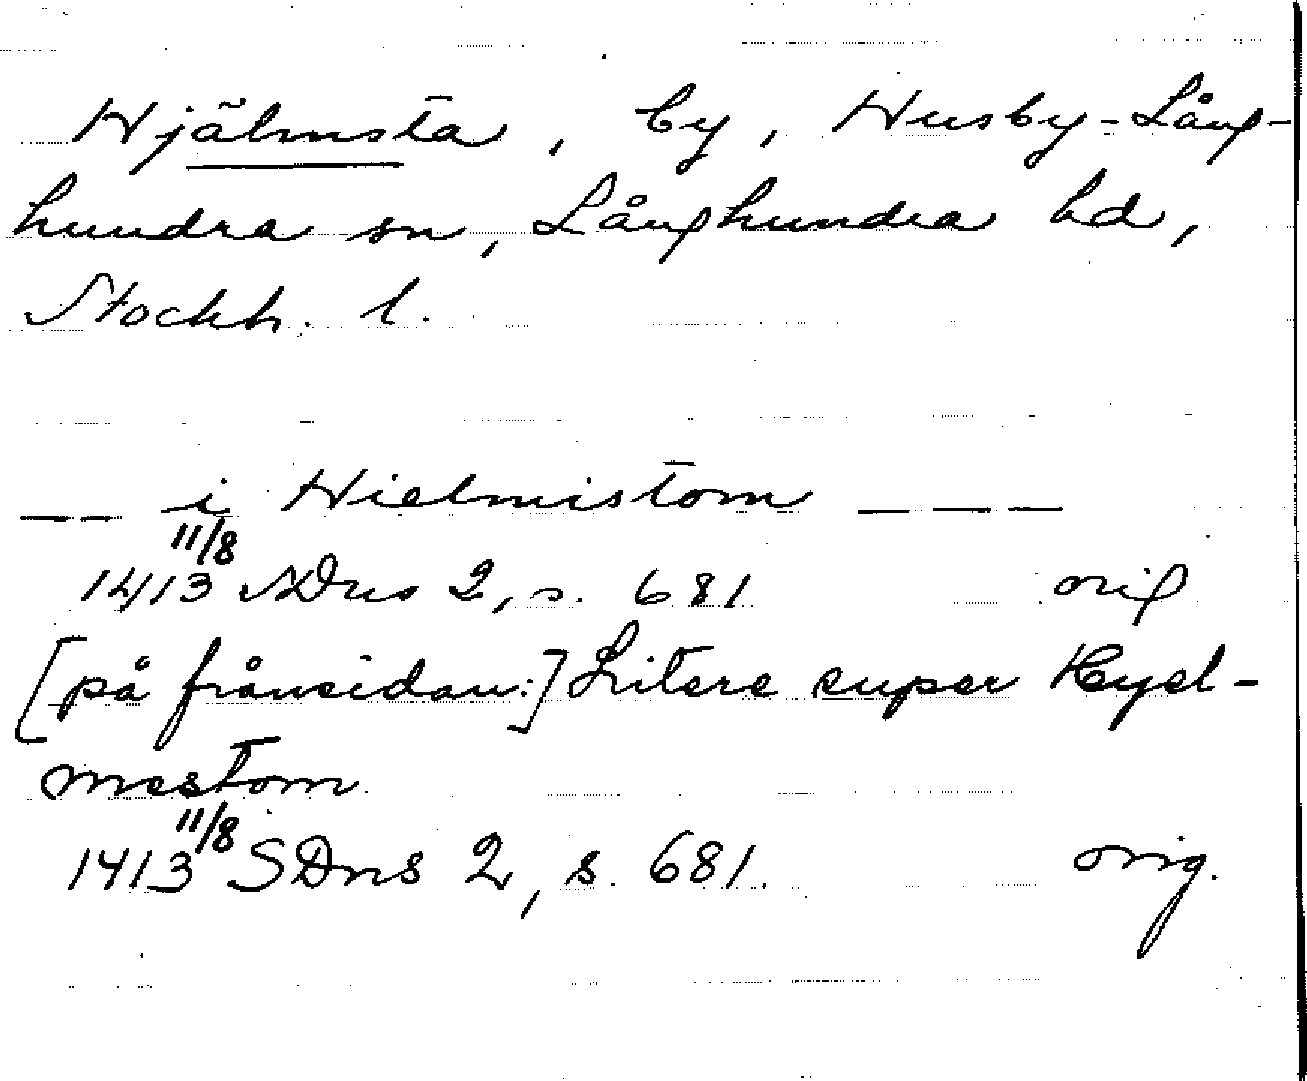 Hjälmsta, by, Husby-Lång-
hundra sn, Långhundra hd,
Stockh. l.
— — i Hielmistom — — —
1413 11/8 SDns 2, s. 681 orig
[på frånsidan:] Litere super Hyel-
mestom
1413 11/8 SDns 2, s. 681. orig.